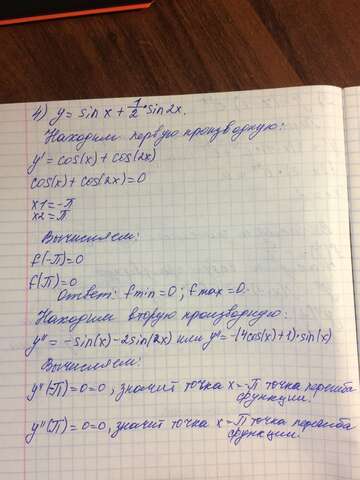 4) y = sin x + 1/2 · sin 2x.
Находим первую производную:
y' = cos(x) + cos(2x)
cos(x) + cos(2x) = 0
x1 = -π
x2 = π
Вычисляем:
f(-π) = 0
f(π) = 0
Ответ: fmin = 0; fmax = 0.
Находим вторую производную:
y'' = -sin(x) - 2sin(2x) или y'' = -(4cos(x) + 1) · sin(x)
Вычисляем:
y''(-π) = 0 = 0, значит точка x = -π точка перегиба
функции.
y''(π) = 0 = 0, значит точка x = π точка перегиба
функции.